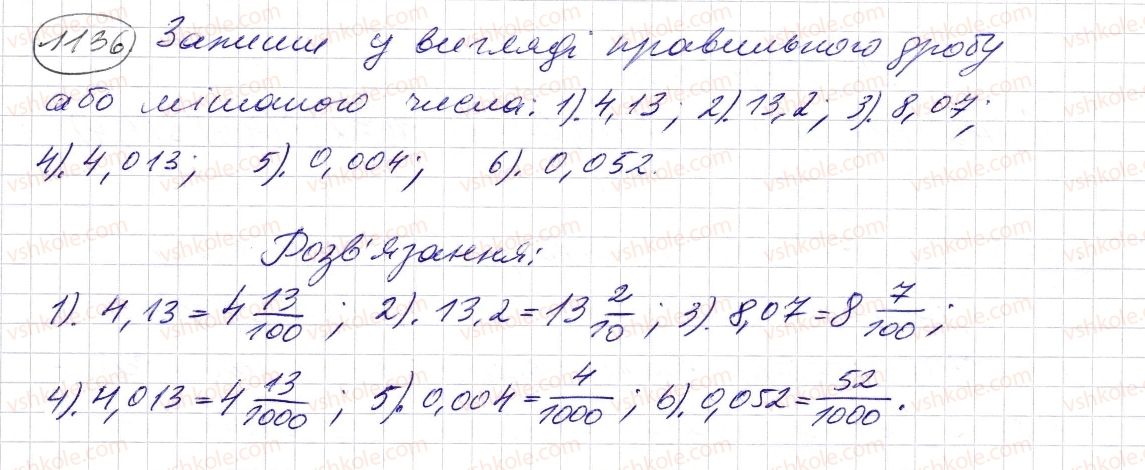 1136 Запиши у вигляді правильного дробу
або мішаного числа: 1). 4,13; 2). 13,2; 3). 8,07;
4). 4,013; 5). 0,004; 6). 0,052.
Розв'язання:
1). 4,13 = 4 13/100 ; 2). 13,2 = 13 2/10 ; 3). 8,07 = 8 7/100 ;
4). 4,013 = 4 13/1000 ; 5). 0,004 = 4/1000 ; 6). 0,052 = 52/1000 .
vshkole.com